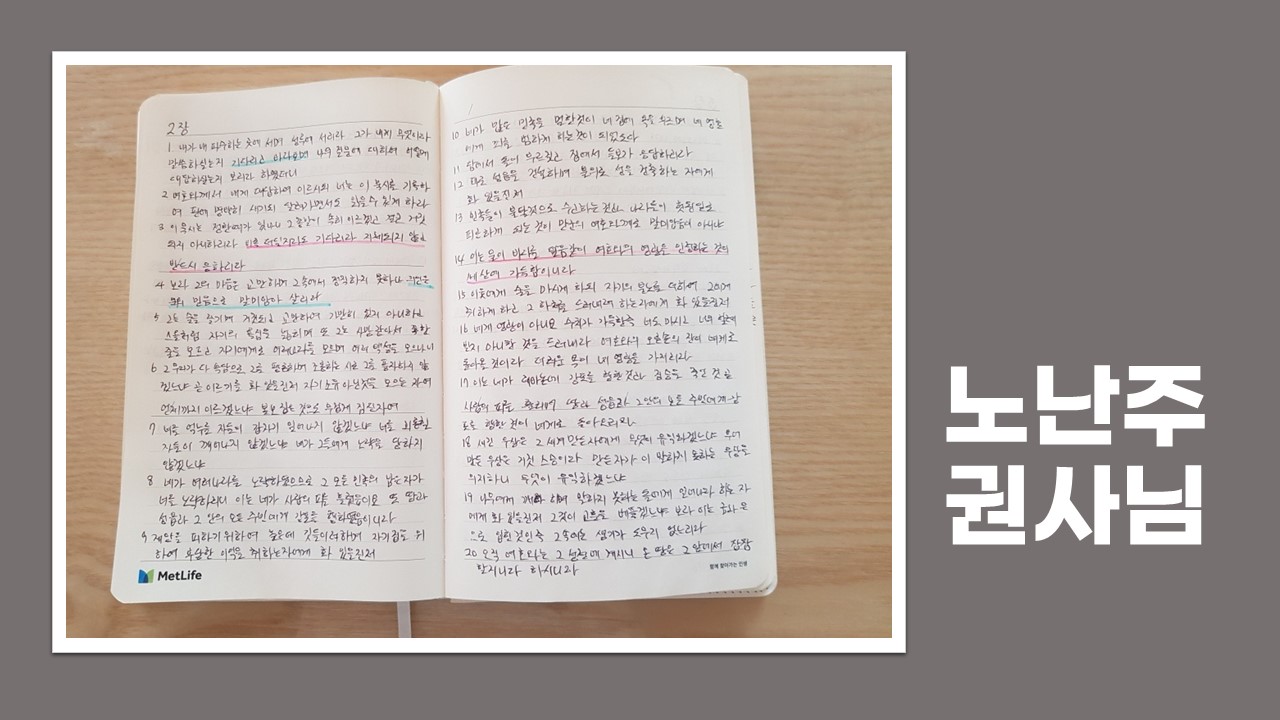 2장
1 내가 내 파수하는 곳에 서며 성루에 서리라 그가 내게 무엇이라
말씀하실는지 기다리고 바라보며 나의 질문에 대하여 어떻게
대답하실는지 보리라 하였더니
2 여호와께서 내게 대답하여 이르시되 너는 이 묵시를 기록하
여 판에 명백히 새기되 달려가면서도 읽을 수 있게 하라
3 이 묵시는 정한때가 있나니 그 종말이 속히 이르겠고 결코 거짓
되지 아니하리라 비록 더딜지라도 기다리라 지체되지 않고
반드시 응하리라
4 보라 그의 마음은 교만하며 그 속에서 정직하지 못하나 의인은
그의 믿음으로 말미암아 살리라
5 그는 술을 즐기며 거짓되고 교만하여 가만히 있지 아니하고
스올처럼 자기의 욕심을 넓히며 또 그는 사망 같아서 족한
줄을 모르고 자기에게로 여러나라를 모으며 여러 백성을 모으나니
6 그 무리가 다 속담으로 그를 평론하며 조롱하는 시로 그를 풍자하지 않
겠느냐 곧 이르기를 화 있을진저 자기 소유 아닌것을 모으는 자여
언제까지 이르겠느냐 볼모 잡은 것으로 무겁게 짐진자여
7 너를 억누를 자들이 갑자기 일어나지 않겠느냐 너를 괴롭힐
자들이 깨어나지 않겠느냐 네가 그들에게 노략을 당하지
않겠느냐
8 네가 여러나라를 노략하였으므로 그 모든 민족의 남은자가
너를 노략하리니 이는 네가 사람의 피를 흘렸음이요 또 땅과
성읍과 그 안의 모든 주민에게 강포를 행하였음이니라
9 재앙을 피하기 위하여 높은데 깃들이려하며 자기 집을 위
하여 부당한 이익을 취하는자에게 화 있을진저
MetLife
10 네가 많은 민족을 멸한것이 네 집에 욕을 부르며 네 영혼
에게 죄를 범하게 하는것이 되었도다
11 담에서 돌이 부르짖고 집에서 들보가 응답하리라
12 피로 성읍을 건설하며 불의로 성을 건축하는 자에게
화 있을진저
13 민족들이 불탈것으로 수고하는것과 나라들이 헛된일로
피곤하게 되는 것이 만군의 여호와께로 말미암음이 아니냐
14 이는 물이 바다를 덮음같이 여호와의 영광을 인정하는 것이
세상에 가득함이니라
15 이웃에게 술을 마시게 하되 자기의 분노를 더하여 그에게
취하게 하고 그 하체를 드러내려 하는자에게 화 있을진저
16 네게 영광이 아니요 수치가 가득한즉 너도 마시고 너의 할례
받지 아니한 것을 드러내라 여호와의 오른손의 잔이 네게로
돌아올 것이라 더러운 욕이 네 영광을 가리리라
17 이는 네가 레바논에 강포를 행한것과 짐승을 죽인 것 곧
사람의 피를 흘리며 땅과 성읍과 그 안의 모든 주민에게 강
포를 행한 것이 네게로 돌아오리라
18 새긴 우상은 그 새겨 만든 사에게 무엇이 유익하겠느냐 부어
만든 우상은 거짓 스승이라 만든자가 이 말하지 못하는 우상을
의지하니 무엇이 유익하겠느냐
19 나무에게 깨라 하며 말하지 못하는 돌에게 일어나라 하는 자
에게 화 있을진저 그것이 교훈을 베풀겠느냐 보라 이는 금과 은
으로 입힌 것인즉 그 속에는 생기가 도무지 없느니라
20 오직 여호와는 그 성전에 계시니 온 땅은 그 앞에서 잠잠
할지니라 하시니라
함께 찾아가는 인생
노난주
권사님